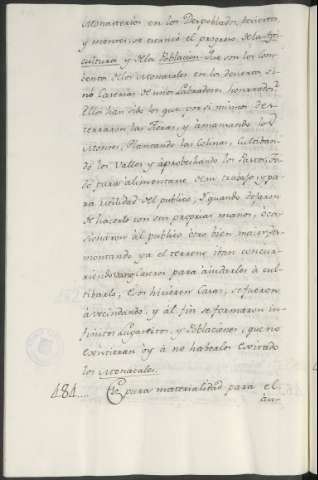 Monasterios en los Despoblados, decierto,
y montes, se ocasionó el progreso de la Agri-
cultura, y de la Poblacion. Que son los Con-
ventos de los Monacales en los deciertos si-
nó Caserias de unos Labradores honrrados?
Ellos han sido los que por sí mismos des-
terraron las Fieras, y amansando los
Montes, Plantando las Colinas, Cultiban-
dó los Valles y aprobechando los Pastos,
para alimentarse de su trabajo, y pa-
ra utilidad del publico, Y quando dejaron
de hacerlo con sus propias manos, oca-
sionaron al publico otro bien maior, des-
montando ya el terreno, iban concur-
riendo varios Caseros para aiudarles à cul-
tibarla, estos hicieron Casas, se fueron
avecindando, y al fin se formaron in-
finitos Lugarcitos, y Poblaciones, que no
existieran oy à no haberlos existido
los Monacales.
484.... Es pura materialidad para el